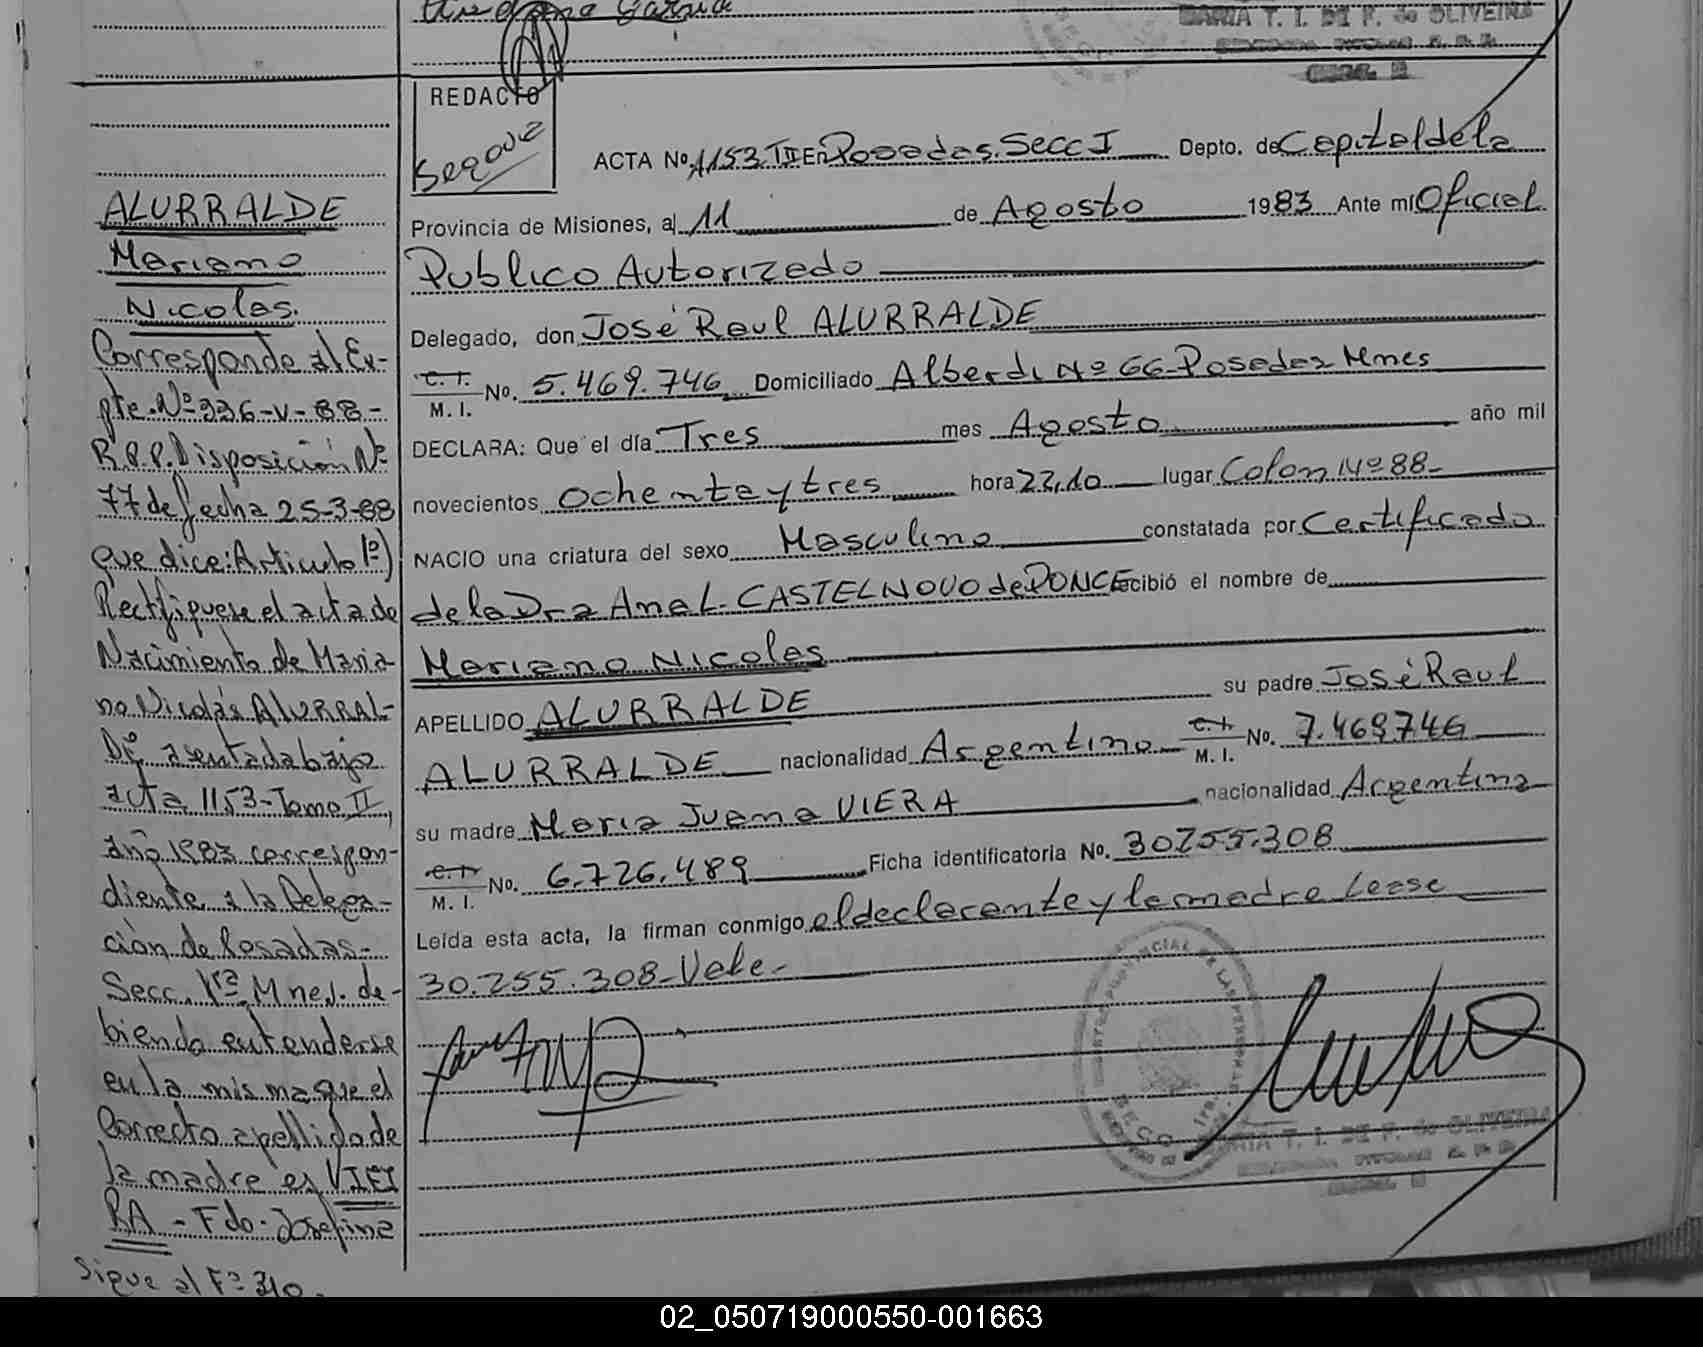 MARIA T. I. DE F. de OLIVEIRA
REDACTO
ACTA No. 1153 TII En Posadas. Secc I Depto. de Capital de la
Provincia de Misiones, al 11 de Agosto 1983 Ante mí Oficial
Publico Autorizado
Delegado, don José Raul ALURRALDE
C. I.
M. I. No. 5.469.746 Domiciliado Alberdi Nº 66-Posadas Mnes
DECLARA: Que el día Tres mes Agosto año mil
novecientos Ochenta y tres hora 22,10 lugar Colon Nº 88-
NACIO una criatura del sexo Masculino constatada por Certificado
de la Dra Ana L. CASTELNOVO de PONCE ecibió el nombre de
Mariano Nicolas
APELLIDO ALURRALDE su padre José Raul
ALURRALDE nacionalidad Argentino C. I.
M. I. No. 7.469746
su madre Maria Juana VIERA nacionalidad Argentina
C. I.
M. I. No. 6.726.489 Ficha identificatoria No. 30255.308
Leída esta acta, la firman conmigo el declarante y la madre Lease
30.255.308-Vale-
MARIA T. I. DE F. de OLIVEIRA
ALURRALDE
Mariano
Nicolas.
Corresponde al Ex-
pte. Nº 936-V-88-
R.P.P. Disposición Nº
77 de fecha 25-3-88
que dice: Articulo 1º)
Rectifiquese el acta de
Nacimiento de Maria
no Nicolás ALURRAL-
DE asentada bajo
acta 1153-Tomo II,
año 1983 correspon-
diente a la Delega-
ción de Posadas-
Secc. 1ª Mnes. de-
biendo entenderse
en la misma que el
Correcto apellido de
la madre es VIEI
RA - Fdo. Josefina
Sigue al Fº 310.
02_050719000550-001663